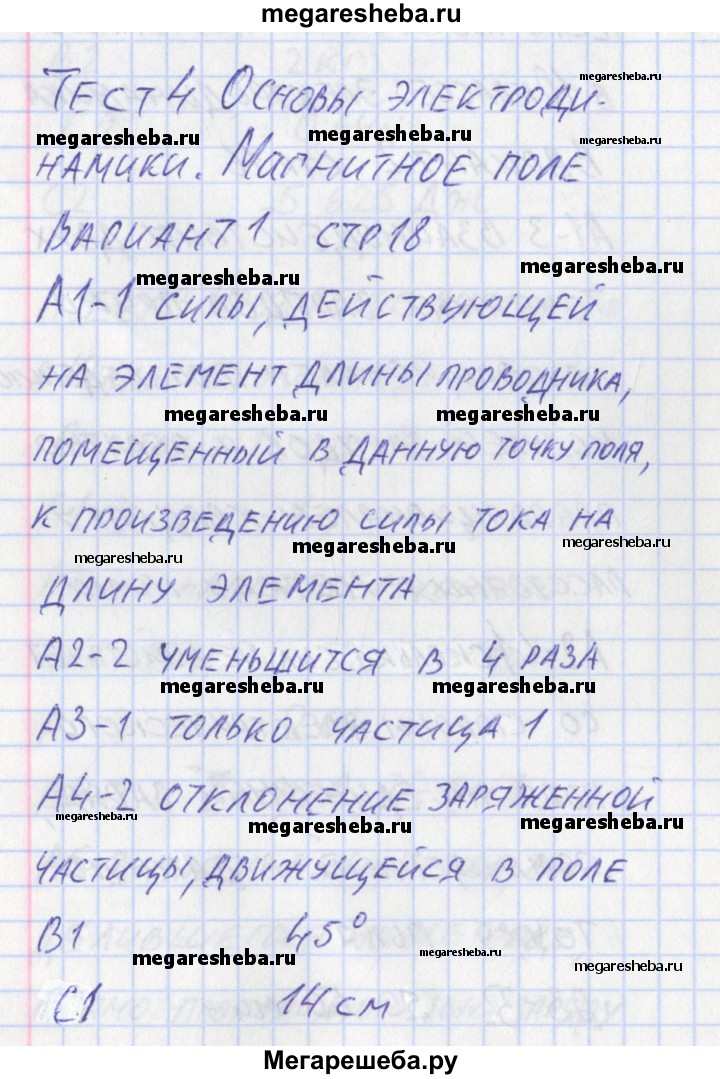 megaresheba.ru
megaresheba.ru
Тест 4 Основы электроди-
megaresheba.ru megaresheba.ru megaresheba.ru
намики. Магнитное поле
Вариант 1 стр 18
megaresheba.ru megaresheba.ru
А1-1 силы, действующей
на элемент длины проводника,
megaresheba.ru megaresheba.ru
помещенный в данную точку поля,
к произведению силы тока на
megaresheba.ru megaresheba.ru megaresheba.ru
длину элемента
А2-2 уменьшится в 4 раза
megaresheba.ru megaresheba.ru
А3-1 только частица 1
А4-2 отклонение заряженной
megaresheba.ru megaresheba.ru megaresheba.ru
частицы, движущейся в поле
В1 45°
megaresheba.ru megaresheba.ru megaresheba.ru
С1 14 см
Мегарешеба.ру